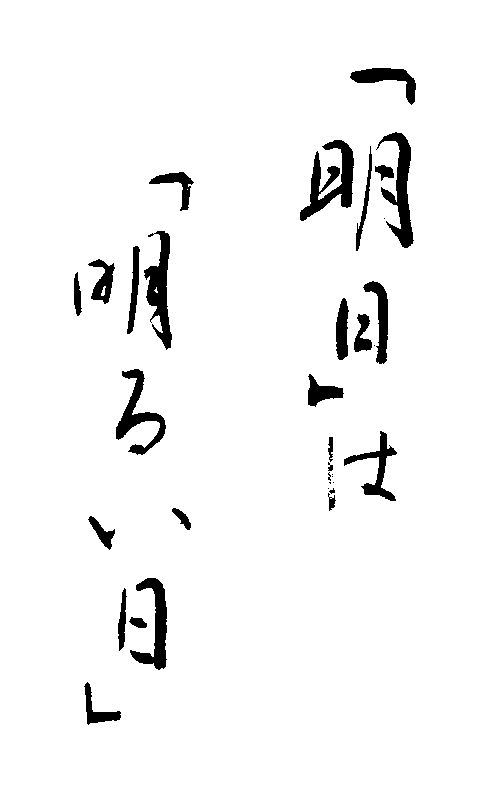 「明日」は
「明るい日」